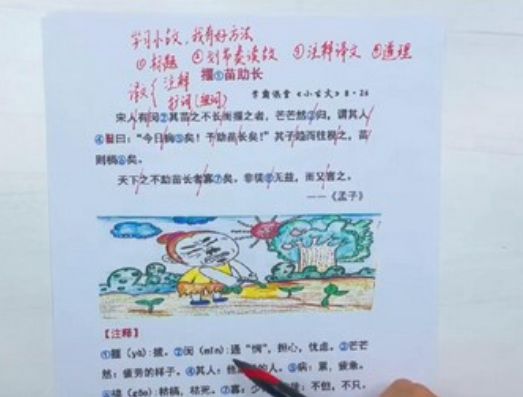 学习小古文,我有好方法
①解题 ②划节奏读故 ③注释译文 ④道理
译文{注释
扩词(组词)
揠①苗助长
《小古文》8·26
宋人有闵②其苗之不长而揠之者,芒芒然③归,谓其人
④曰:“今日病⑤矣!予助苗长矣!”其子趋而往视之,苗
则槁⑥矣。
天下之不助苗长者寡⑦矣。非徒⑧无益,而又害之。
——《孟子》
【注释】
①揠(yà):拔。②闵(mǐn):通“悯”,担心,忧虑。③芒芒
然:疲劳的样子。④其人:他 的人。⑤病:累,疲惫。
⑥槁(gǎo):枯槁,枯死。⑦寡:少 徒:不但,不只。